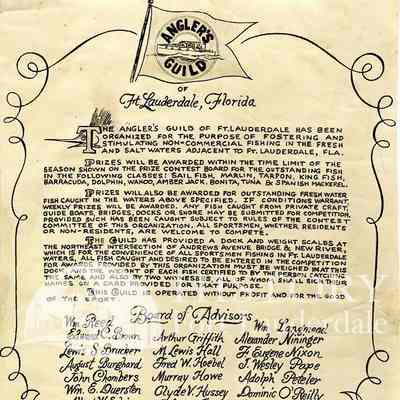 ANGLER'S
GUILD
OF
Ft. Lauderdale, Florida
THE ANGLER'S GUILD OF FT. LAUDERDALE HAS BEEN
ORGANIZED FOR THE PURPOSE OF FOSTERING AND
STIMULATING NON-COMMERCIAL FISHING IN THE FRESH
AND SALT WATERS ADJACENT TO FT. LAUDERDALE, FLA.
PRIZES WILL BE AWARDED WITHIN THE TIME LIMIT OF THE
SEASON SHOWN ON THE PRIZE CONTEST BOARD FOR THE OUTSTANDING FISH
IN THE FOLLOWING CLASSES: SAIL FISH, MARLIN, TARPON, KING FISH,
BARRACUDA, DOLPHIN, WAHOO, AMBER JACK, BONITA, TUNA & SPANISH MACKEREL.
PRIZES WILL ALSO BE AWARDED FOR OUTSTANDING FRESH WATER
FISH CAUGHT IN THE WATERS ABOVE SPECIFIED. IF CONDITIONS WARRANT
WEEKLY PRIZES WILL BE AWARDED. ANY FISH CAUGHT FROM PRIVATE CRAFT,
GUIDE BOATS, BRIDGES, DOCKS OR SHORE MAY BE SUBMITTED FOR COMPETITION,
PROVIDED SUCH HAS BEEN CAUGHT SUBJECT TO RULES OF THE CONTEST
COMMITTEE OF THIS ORGANIZATION. ALL SPORTSMEN, WHETHER RESIDENTS
OR NON-RESIDENTS, ARE WELCOME TO COMPETE.
THE GUILD HAS PROVIDED A DOCK AND WEIGHT SCALES AT
THE NORTHEAST INTERSECTION OF ANDREWS AVENUE BRIDGE & NEW RIVER,
WHICH IS FOR THE CONVENIENCE OF ALL SPORTSMEN FISHING IN FT. LAUDERDALE
WATERS, ALL FISH CAUGHT AND DESIRED TO BE ENTERED IN THE COMPETITION
FOR AWARDS PROVIDED BY THE ORGANIZATION MUST BE WEIGHED AT THIS
DOCK, AND THE WEIGHT OF EACH FISH CERTIFIED TO BY THE PERSON CATCHING
THE SAME AND ALSO BY TWO WITNESSES ALL OF WHOM SHALL SIGN THEIR
NAMES ON A CARD PROVIDED FOR THAT PURPOSE.
THIS GUILD IS OPERATED WITHOUT PROFIT AND FOR THE GOOD
OF THE SPORT.
Board of Advisors
Wm. Reed Wm. Langmead
Arthur Griffith Alexander Nininger
Lewis S. Drucker M. Lewis Hall F. Eugene Nixon
August Burghard Fred W. Hoebel J. Wesley Pape
John Chambers Murray Howe Adolph Peteler
Wm. E. Duersten Clyde V. Hussey Dominic O'Reilly
Fort Lauderdale